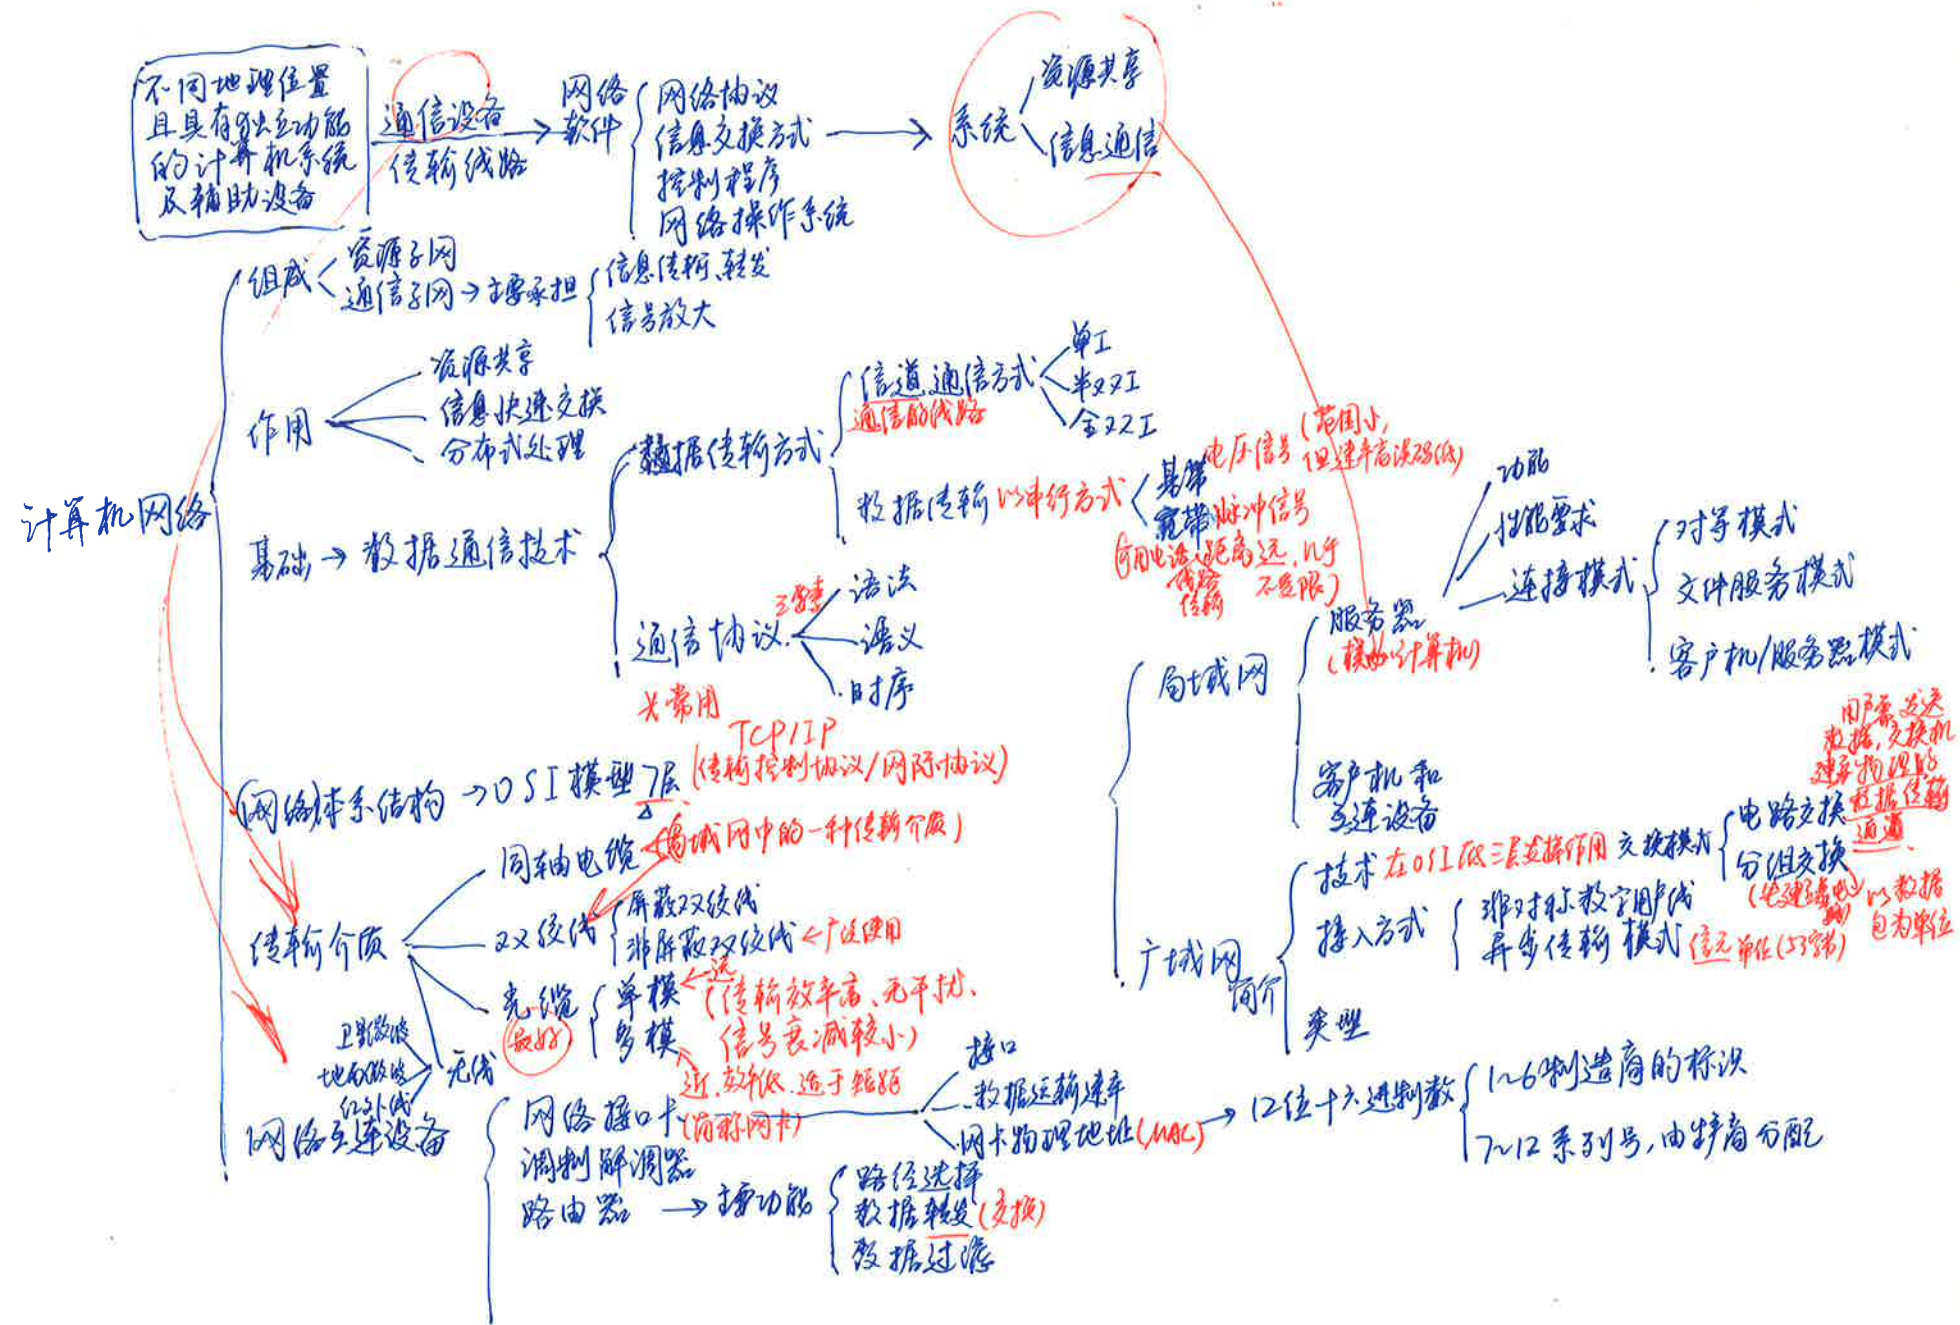 不同地理位置
且具有独立功能
的计算机系统
及辅助设备
通信设备
传输线路
网络
软件
网络协议
信息交换方式
控制程序
网络操作系统
系统
资源共享
信息通信
计算机网络
组成
资源子网
通信子网→主要承担
信息传输、转发
信号放大
作用
资源共享
信息快速交换
分布式处理
基础→数据通信技术
数据传输方式
信道通信方式
通信的线路
单工
半双工
全双工
数据传输 以串行方式
基带 电压信号 (范围小,
但速率高误码低)
宽带 脉冲信号
(可用电话 距离远,几乎
线路 不受限)
传输
通信协议
三要素
语法
语义
时序
常用
TCP/IP
(传输控制协议/网际协议)
(网络)体系结构→OSI模型7层
传输介质
同轴电缆 (局域网中的一种传输介质)
双绞线
屏蔽双绞线
非屏蔽双绞线←广泛使用
光缆
最好
单模←远
(传输效率高、无干扰、
信号衰减较小)
多模
近、效率低、适于短距
无线
卫星微波
地面微波
红外线
网络互连设备
网络接口卡(简称网卡)
接口
数据运输速率
网卡物理地址(MAC)→12位十六进制数
1~6制造商的标识
7~12系列号,由生产商分配
调制解调器
路由器→主要功能
路径选择
数据转发(交换)
数据过滤
局域网
服务器
功能
性能要求
连接模式
对等模式
文件服务模式
客户机/服务器模式
客户机和
互连设备
广域网
简介
技术 在OSI低三层发挥作用 交换模式
电路交换
用户需发送
数据,交换机
建立物理的
数据传输
通道
分组交换
以数据
包为单位
接入方式
非对称数字用户线
异步传输模式 信元单位(53字节)
类型